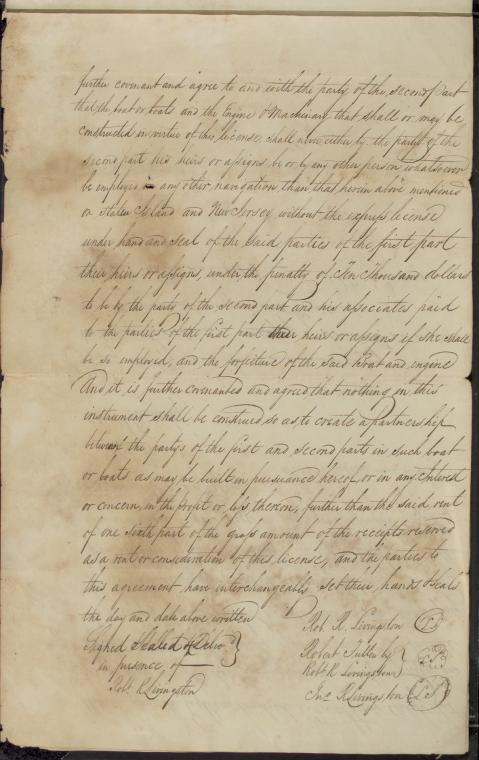 further covenant and agree to and with the party of the second part
that the boat or boats and the Engine & Machinary that shall or may be
constructed in virtue of this license, shall never either by the party of the
second part his heirs or assigns be or by any other person whatsoever
be employed in any other navigation than that herein above mentioned
on Staten Island and New Jersey without the express license
under hand and seal of the said parties of the first part
their heirs or assigns, under the penalty of Ten Thousand dollars
to be by the party of the second part and his associates paid
to the parties of the first part their heirs or assigns if she shall
be so employed, and the forfeiture of the said Boat and engine
And it is further covenanted and agreed that nothing in this
instrument shall be construed so as to create a partnership
between the partys of the first and second parts in such boat
or boats as may be built in pursuance hereof, or in any Interest
or concern, in the profit or loss thereon, further than the said rent
of one sixth part of the gross amount of the receipts reserved
as a rent or consideration of this license, and the parties to
this agreement, have interchangeably set their hands & seals
the day and date above written
Rob. R. Livingston LS
Signed Sealed & Deliv
in presence of
Robert Fulton by
Robt. R Livingston LS
Robt. R Livingston
Jno. R Livingston LS